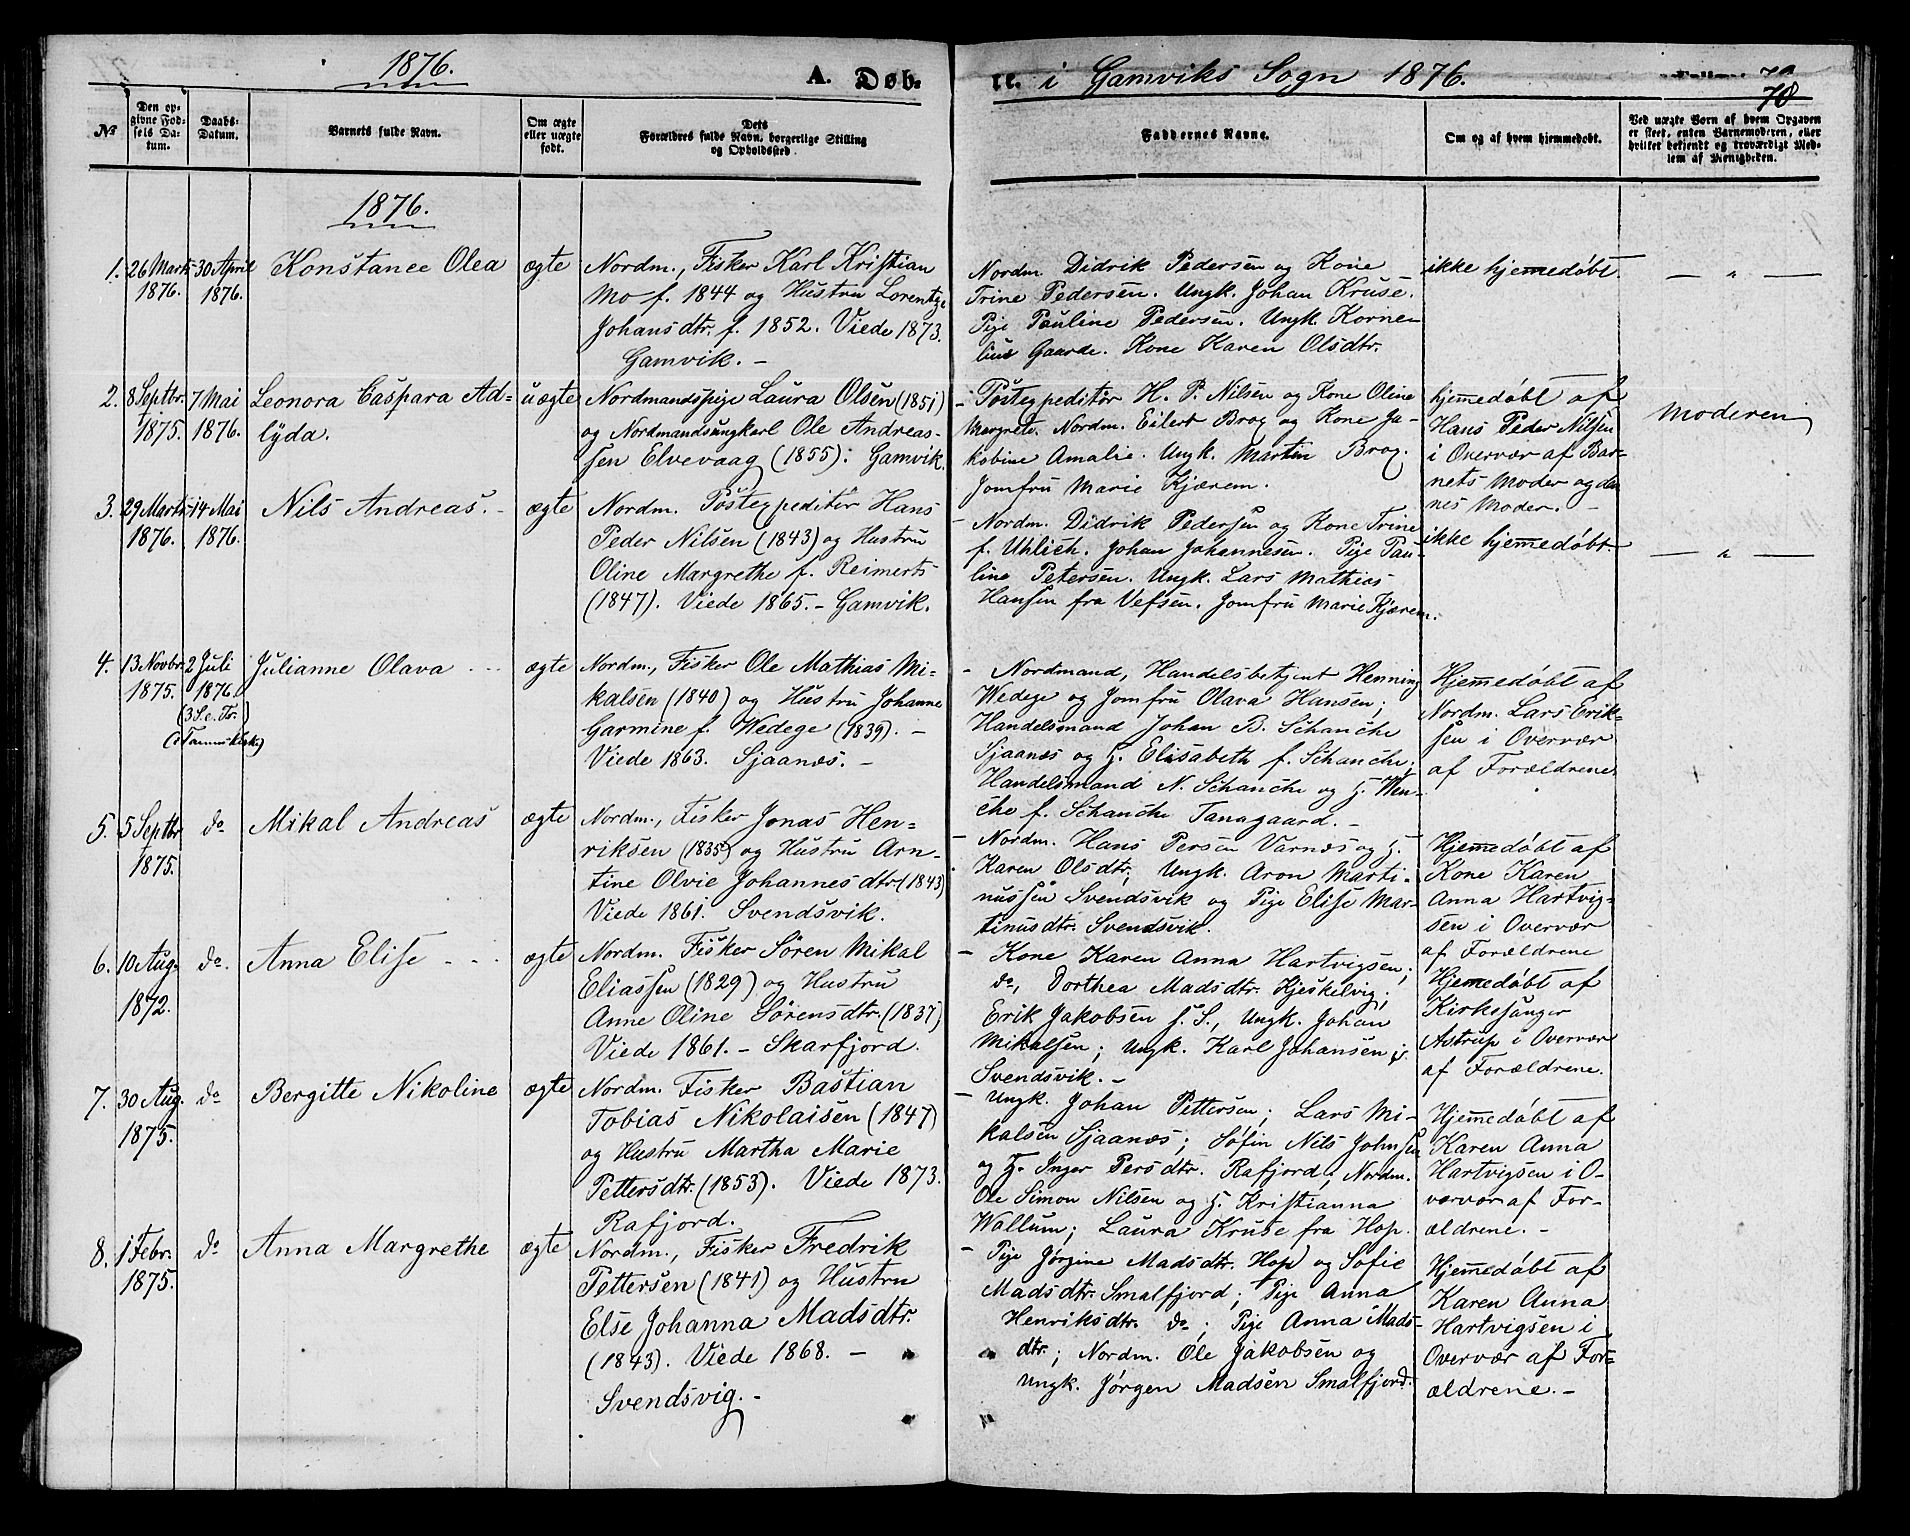 1876.
A. Døb-
te. i Gamviks Sogn 1876.
70
No
Den op-
givne Fød-
sels Da-
tum.
Daabs-
Datum.
Barnets fulde Navn.
Om ægte
eller uægte
født.
Dets
Forældres fulde Navn, borgerlige Stilling
og Opholdssted.
Faddernes Navne.
Om og af hvem hjemmedøbt.
Ved uægte Børn af hvem Opgaven
er skeet, enten Barnemoderen, eller
hvilket bekjendt og troværdigt Med-
lem af Menigheden.
1876.
1.
26 Marts
1876.
30 April
1876.
Konstance Olea
ægte
Nordm., Fisker Karl Kristian
Mo f. 1844 og Hustru Lorentze
Johansdtr. f. 1852. Viede 1873.
Gamvik. -
Nordm. Didrik Pedersen og Kone
Trine Pedersen. Ungk. Johan Kruse.
Pige Pauline Pedersen. Ungk. Korne-
lius Gaarde. Kone Karen Olsdtr.
ikke hjemedøbt.
— " —
2.
8 Septbr.
1875.
7 Mai
1876.
Leonora Caspara Ad=
lyda.
uægte
Nordmandspige Laura Olsen (1851)
og Nordmandsungkarl Ole Andreas-
sen Elvevaag (1855): Gamvik.
- Postexpeditør H. P. Nilsen og Kone Oline
Margrete. Nordm. Eilert Brox og Kone Ja-
kobine Amalie. Ungk. Martin Brox.
Jomfru Marie Kjærem.
hjemedøbt af
Hans Peder Nilsen
i Overvær af Bar-
nets Moder og den-
nes Moder. -
Moderen
3.
29 Marts
1876.
14 Mai
1876.
Nils Andreas. -
ægte
Nordm. Postexpeditør Hans
Peder Nilsen (1843) og Hustru
Oline Margrethe f. Reimerts
(1847). Viede 1865. - Gamvik.
- Nordm. Didrik Pedersen og Kone Trine
f. Uhlich. Johan Johannesen. Pige Pau-
line Petersen. Ungk. Lars Mathias
Hansen fra Vefsen. Jomfru Marie Kjærem.
ikke hjemedøbt.
— " —
4.
13 Novbr.
1875.
2 Juli
1876.
(3 S. e. Tr.)
(i Tanens Kirke)
Julianne Olava - -
ægte
Nordm., Fisker Ole Mathias Mi-
kalsen (1840) og Hustru Johanne
Garmine f. Wedege (1839). -
Viede 1863. Sjaanæs. -
- Nordmand, Handelsbetjent Henning
Wedege og Jomfru Olava Hansen;
Handelsmand Johan B. Schanche
Sjaanæs og H. Elisabeth f. Schanche;
Handelsmand N. Schanche og H. Wen-
che f. Schanche Tanagaard. -
Hjemedøbt af
Nordm. Lars Erik-
sen i Overvær
af Forældrene
5.
5 Septbr
1875.
do
Mikal Andreas
ægte
Nordm., Fisker Jonas Hen=
riksen (1835) og Hustru Arn-
tine Olvie Johannesdtr. (1843)
Viede 1861. Svendsvik.
- Nordm. Hans Persen Varnæs og H.
Karen Olsdtr.; Ungk. Aron Marti-
nussen Svendsvik og Pige Elise Mar-
tinusdtr. Svendsvik.
Hjemedøbt af
Kone Karen
Anna Hartvig-
sen i Overvær
af Forældrene
6.
10 Aug.
1872.
do.
Anna Elise - - -
ægte
Nordm. Fisker Sören Mikal
Eliassen (1829) og Hustru
Anne Oline Sörensdtr. (1837)
Viede 1861. - Skarfjord.
- Kone Karen Anna Hartvigsen;
do, Dorthea Madsdtr. Kjeskelvig;
Erik Jakobsen s. S., Ungk. Johan
Mikalsen; Ungk. Karl Johansen
Svendsvik. -
Hjemedøbt af
Kirkesanger
Astrup i Overvær
af Forældrene.
7.
30 Aug.
1875.
do
Bergitte Nikoline
ægte
Nordm. Fisker Bastian
Tobias Nikolaisen (1847)
og Hustru Martha Marie
Pettersdtr. (1853). Viede 1873.
Rafjord.
- Ungk. Johan Pettersen; Lars Mi-
kalsen Sjaanæs; Söfin Nils Johnsen
og H. Inger Persdtr. Rafjord; Nordm.
Ole Simon Nilsen og H. Kristianna
Wallum; Laura Kruse fra Hop.
Hjemedøbt af
Karen Anna
Hartvigsen i O-
vervær af For-
ældrene. -
8.
1 Febr.
1875.
do
Anna Margrethe
ægte
Nordm., Fisker Fredrik
Pettersen (1841) og Hustru
Else Johanna Madsdtr.
(1843). Viede 1868. -
Svendsvig. -
- Pige Jørgine Madsdtr. Hop og Sofie
Madsdtr. Smalfjord; Pige Anna
Henriksdtr. do; Pige Anna Mads-
dtr.; Nordm. Ole Jakobsen og
Ungk. Jørgen Madsen Smalfjord.
Hjemedøbt af
Karen Anna
Hartvigsen i
Overvær af For=
ældrene. -